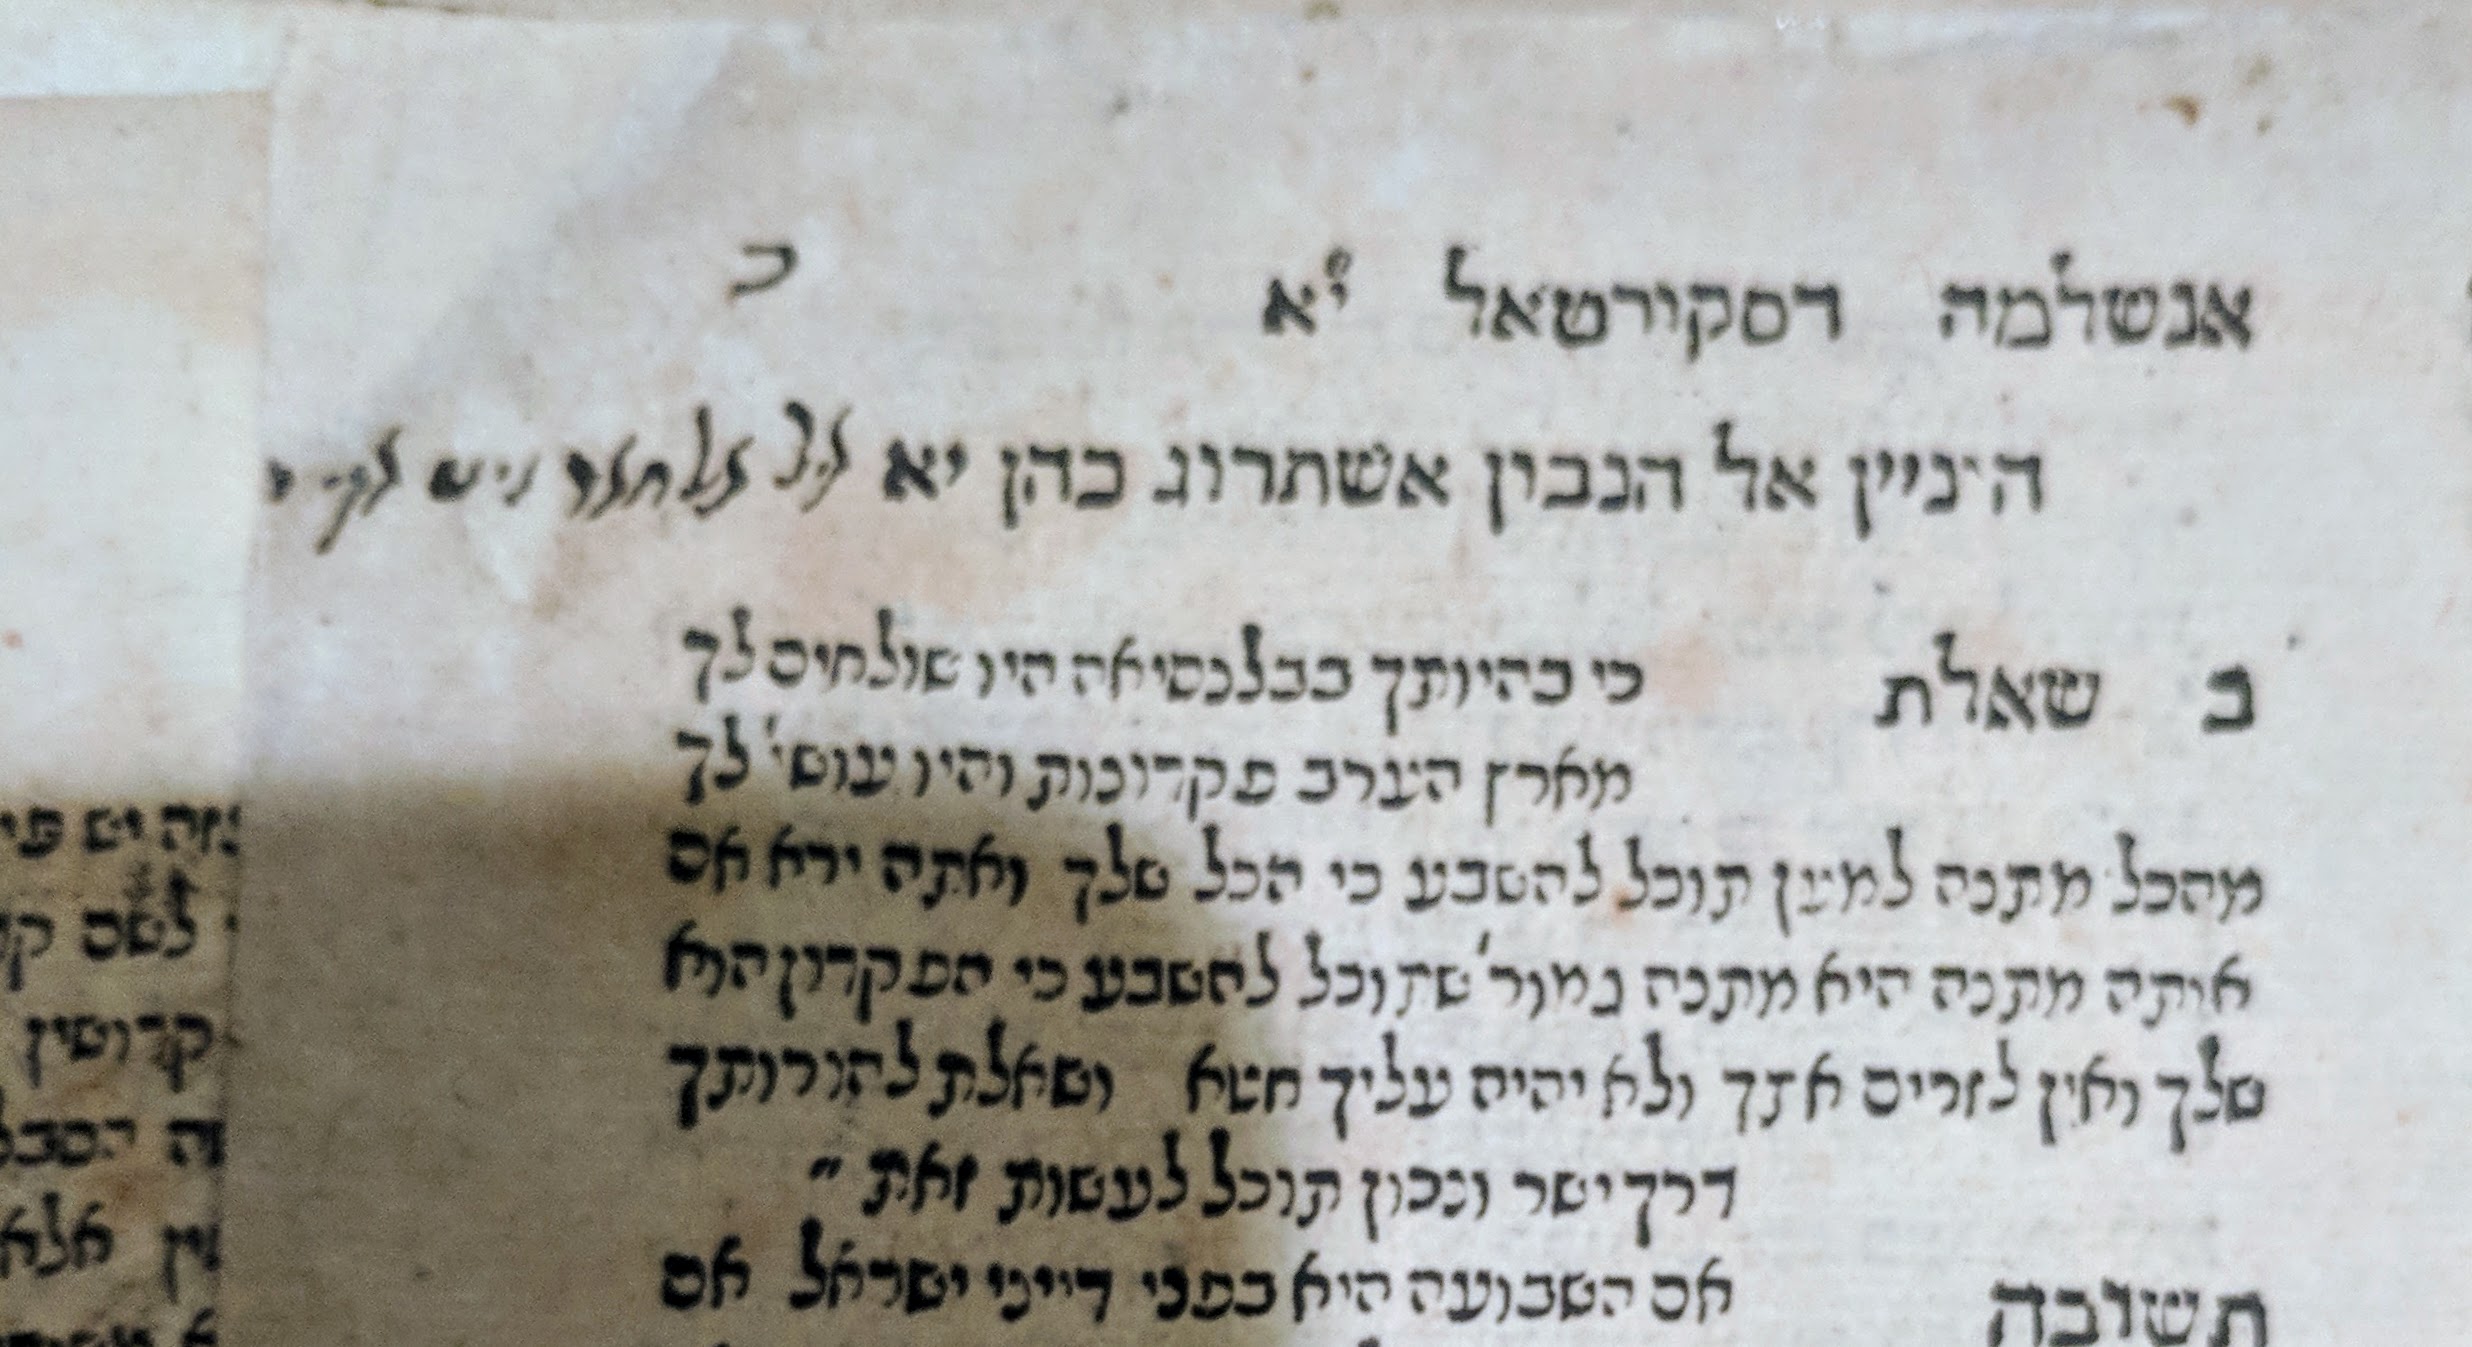 כ
אנשלמה דסקורטאל י֯א
היניין אל הנבון אשתרוג כהן יא
ב שאלת כי בהיותך בבלנסיאה היו שולחים לך
מארץ הערב פקדונות והיו עושי' לך
מהכל מתנה למען תוכל להשבע כי הכל שלך ואתה ירא אם
אותה מתנה היא מתנה גמור' שתוכל להשבע כי הפקדון הוא
שלך ואין לזרים אתך ולא יהיה עליך חטא ושאלת להורותך
דרך ישר ונכון תוכל לעשות זאת "
תשובה אם השבועה היא בפני דייני ישראל אם
לשם
קדושין
אלא